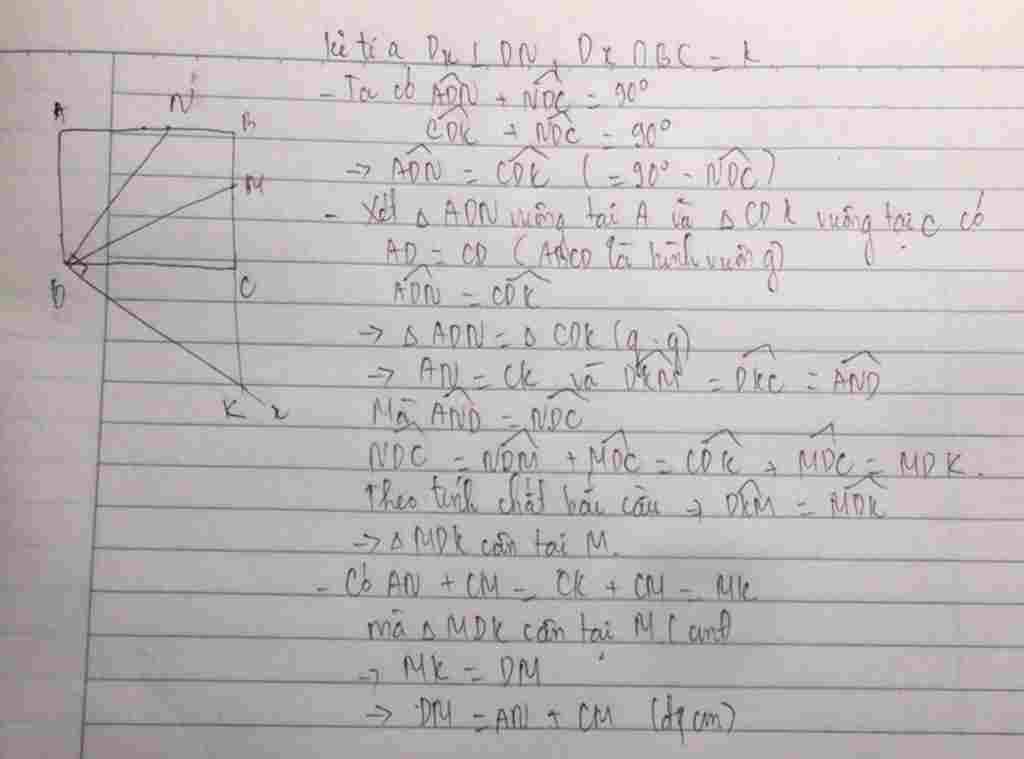 Kẻ tia Dx ⊥ DN, Dx ∩ BC = K
- Ta có \widehat{ADN} + \widehat{NDC} = 90°
\widehat{CDK} + \widehat{NDC} = 90°
→ \widehat{ADN} = \widehat{CDK} (= 90° - \widehat{NDC})
- Xét Δ ADN vuông tại A và Δ CDK vuông tại C có
AD = CD (ABCD là hình vuông)
\widehat{ADN} = \widehat{CDK}
→ Δ ADN = Δ CDK (g.g)
→ AN = CK và \widehat{DKM} = \widehat{DKC} = \widehat{AND}
Mà \widehat{AND} = \widehat{NDC}
\widehat{NDC} = \widehat{NDM} + \widehat{MDC} = \widehat{CDK} + \widehat{MDC} = MDK.
Theo tính chất bắc cầu → \widehat{DKM} = \widehat{MDK}
→ Δ MDK cân tại M.
- Có AN + CM = CK + CM = MK
mà Δ MDK cân tại M (cmt)
→ MK = DM
→ DM = AN + CM (đpcm)
A
N
B
M
D
C
K
x